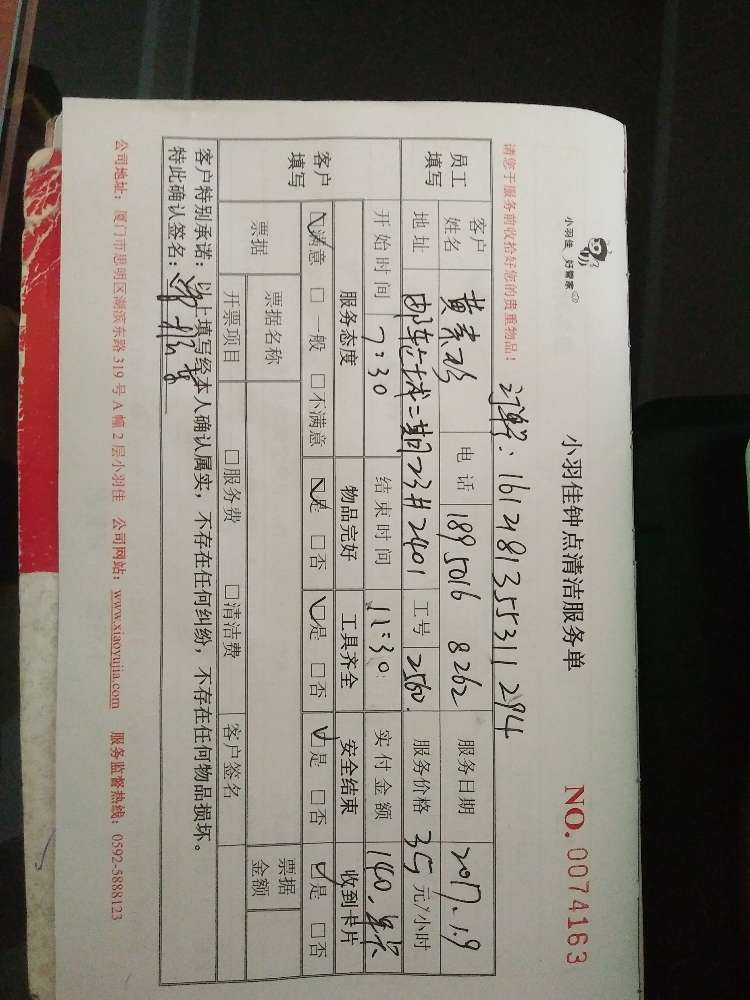 小羽佳 好管家
小羽佳钟点清洁服务单
NO. 0074163
订单号: 161218135531 1294
请您于服务前收拾好您的贵重物品!
员工填写
客户姓名 黄 电话 1895016 8262 服务日期 2017.1.9
地址 二期23#2401 工号 2560. 服务价格 35元/小时
开始时间 7:30 结束时间 11:30 实付金额 140.
客户填写
服务态度 物品完好 工具齐全 安全结束 收到卡片
☑满意 □一般 □不满意 ☑是 □否 ☑是 □否 ☑是 □否 ☑是 □否
票据 票据名称 票据金额
开票项目 □服务费 □清洁费 客户签名
客户特别承诺:以上填写经本人确认属实,不存在任何纠纷,不存在任何物品损坏。
特此确认签名:
公司地址:厦门市思明区湖滨东路 319 号 A 幢 2 层小羽佳 公司网站:www.xiaoyujia.com 服务监督热线:0592-5888123